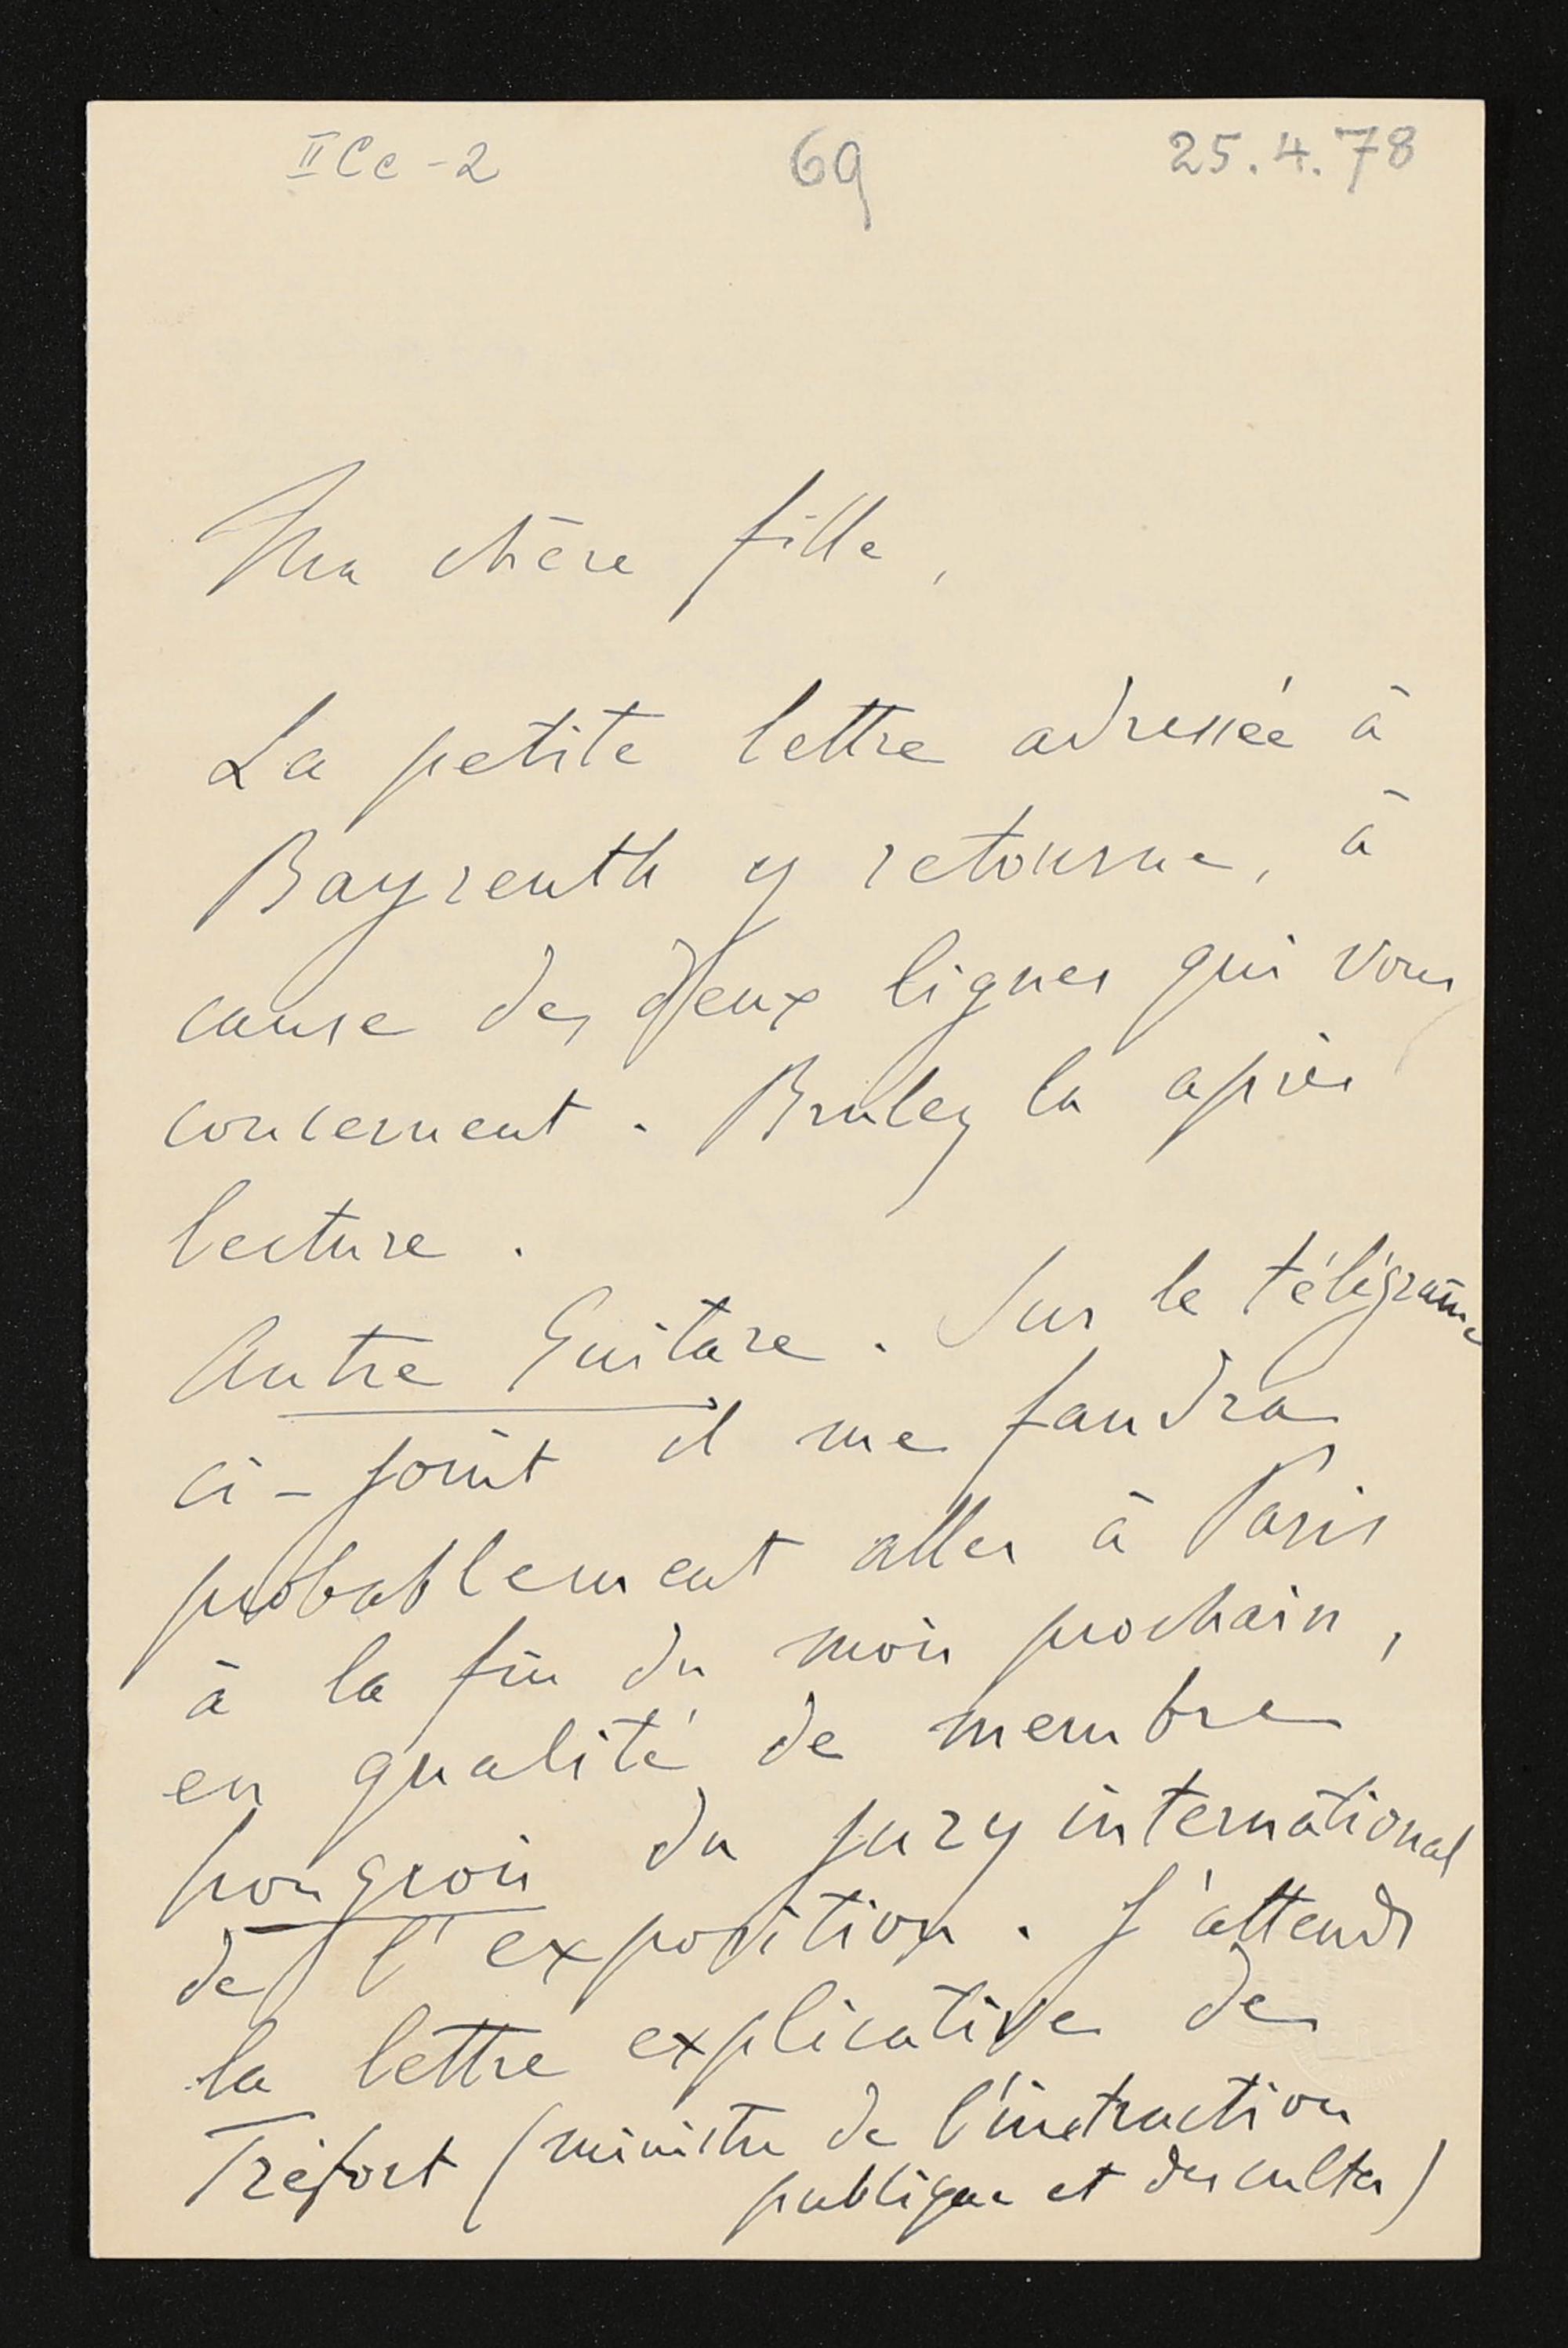 II Ce - 2 69 25.4.78
Ma chère fille,
La petite lettre adressée à
Bayreuth y retourne, à
cause des deux lignes qui vous
concernent. Brulez la après
lecture.
Autre Guitare. Sur le télégramme
ci-joint il me faudra
probablement aller à Paris
à la fin du mois prochain,
en qualité de membre
hongrois du Jury international
de l'exposition. J'attends
la lettre explicative de
Tréfort (ministre de l'instruction
publique et des cultes)